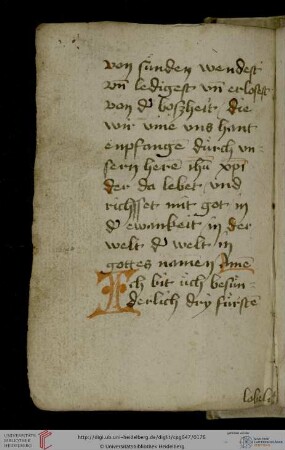 von sünden wendest
vn̄ ledigest vn̄ erlosest
von d' boszheit die
wir vm̄e vns hant
enpfange durch vn-
sern herē ihū xp̄i
der da lebet vnd
richsset mit got in
d' ewankeit in der
welt d' welt in
gottes namen Amē
Ich bit üch besün-
derlich dry fürste
http://digi.ub.uni-heidelberg.de/diglit/cpg547/0026
© Universitätsbibliothek Heidelberg